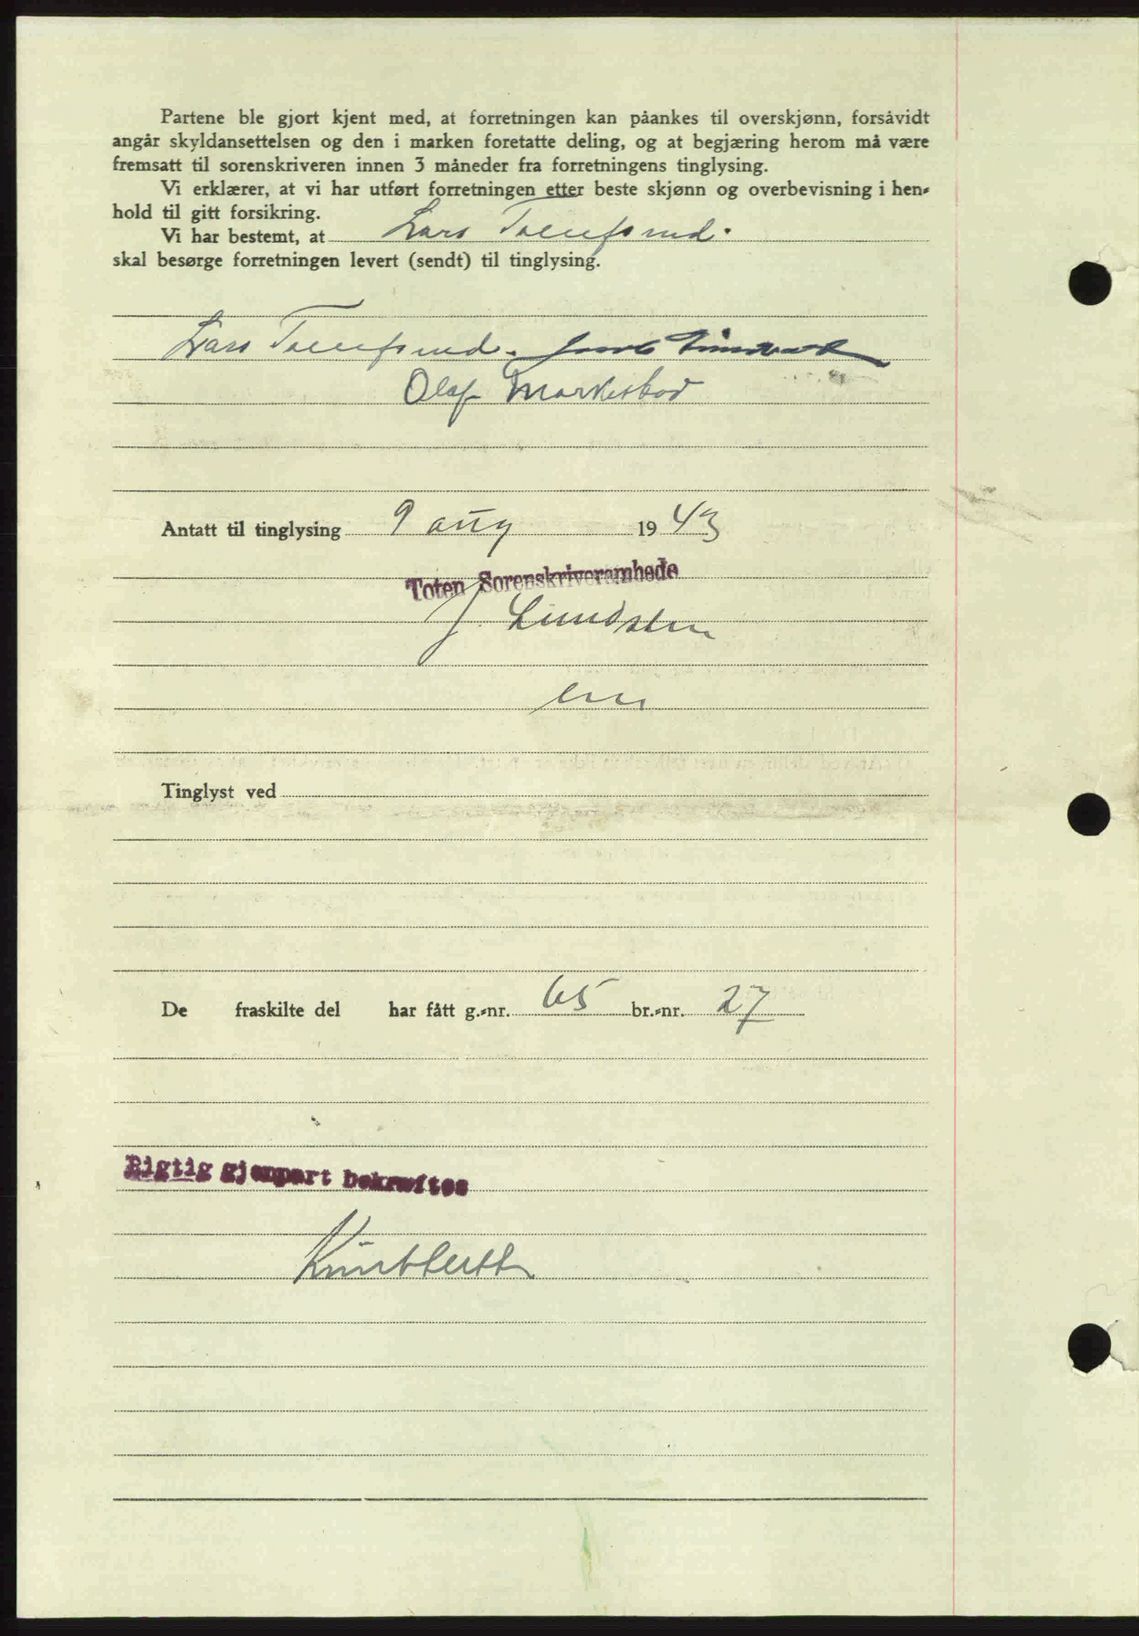 Partene ble gjort kjent med, at forretningen kan påankes til overskjønn, forsåvidt
angår skyldansettelsen og den i marken foretatte deling, og at begjæring herom må være
fremsatt til sorenskriveren innen 3 måneder fra forretningens tinglysing.
Vi erklærer, at vi har utført forretningen etter beste skjønn og overbevisning i hen-
hold til gitt forsikring.
Vi har bestemt, at Lars
skal besørge forretningen levert (sendt) til tinglysing.
Lars
Olaf
Antatt til tinglysing 9 aug 1943
Toten Sorenskriverembede
J. Lundsten
Tinglyst ved
De fraskilte del har fått g.-nr. 65 br.-nr. 27
Rigtig gjenpart bekræftes